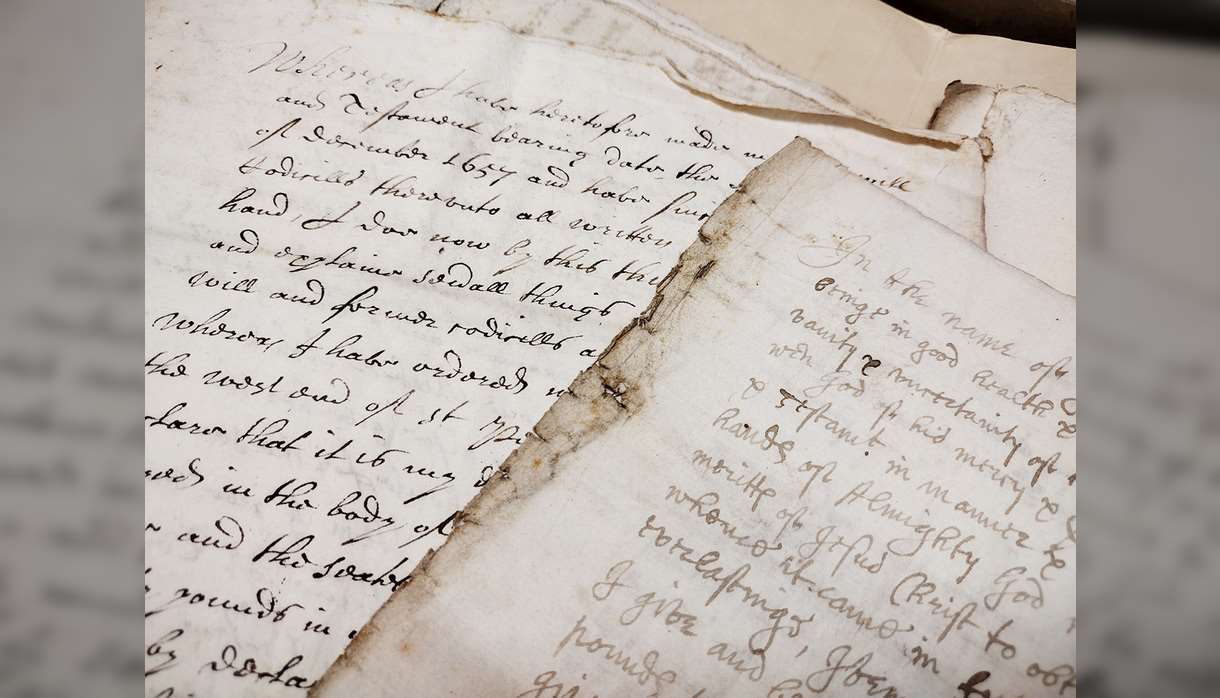 Whereas I have heretofore made m
will
and Testament bearing date the
of december 1657 and have
Codicills thereunto all written
hand, I doe now by this
and explaine sevall things
will and former codicills a
whereas I have ordered
the west end of st
that it is my
in the body of
and the
pounds in
by decla
In the name of
beinge in good health
vanity & uncertainty of
wch God of his mercy &
& Testamt in manner &
hands of Almighty God
meritts of Jesus Christ to
whence it came in
everlastinge,
I give and
pounds